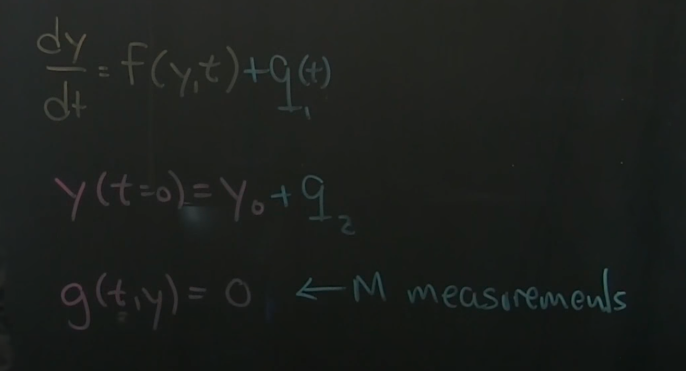 dy/dt = f(y,t) + q₁(t)
y(t=0) = y₀ + q₂
g(t,y) = 0 ← M measurements